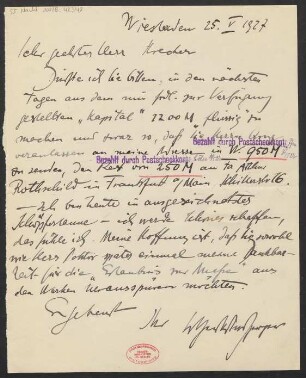 Wiesbaden 25. V 1927
Sehr geehrter Herr Strecker
Dürfte ich Sie bitten, in den nächsten
Tagen aus dem mir frdl. zur Verfügung
gestellten „Kapital“ 1200 M. flüssig zu
machen und zwar so, daß Sie
Bezahlt durch Postscheckkonto
veranlassen an meine Adresse in W. 950 M
Bezahlt durch Postscheckkonto
zu senden, den Rest von 250 M an Fa. Arthur
Rothschild in Frankfurt a/Main
Ich bin heute in ausgezeichneter
Schöpferlaune – ich werde Schönes schaffen,
das fühle ich. Meine Hoffnung ist, daß Sie sowohl
wie Herr Doktor später einmal meine Dankbar-
keit für die „Erlaubnis zur Muße“ aus
den Werken herausspüren möchten.
Ergebenst
Ihr